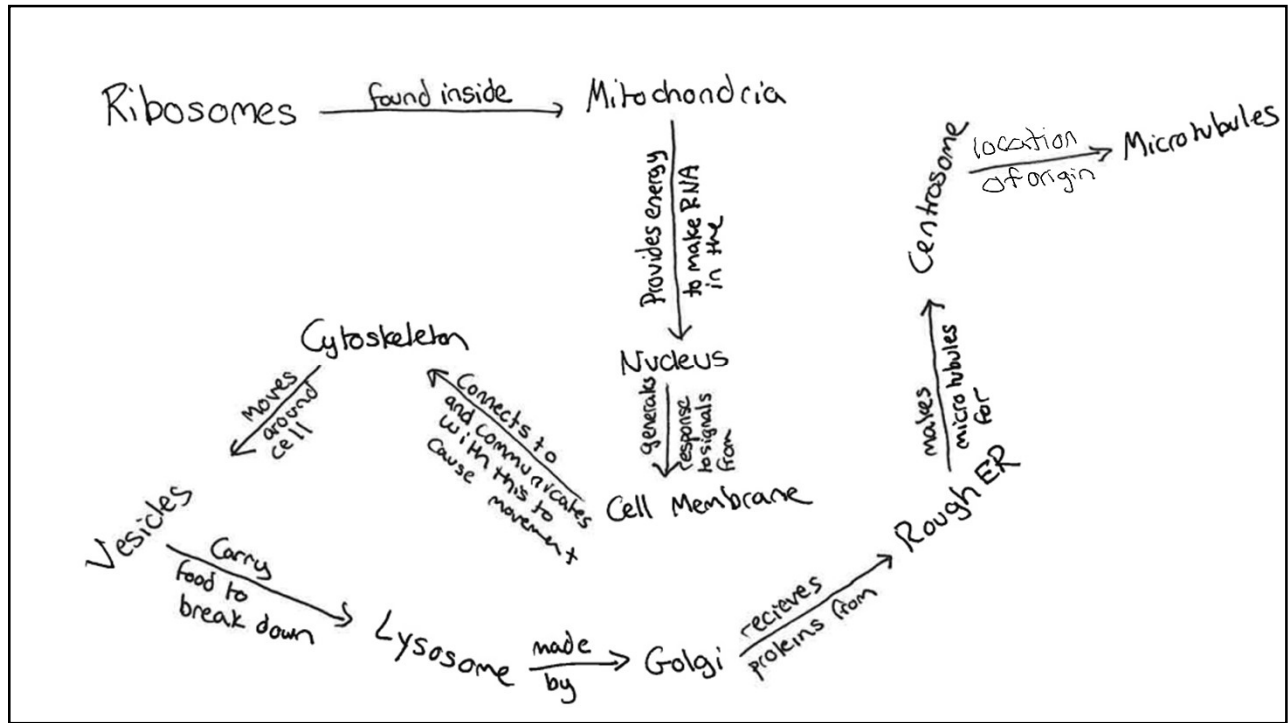 Ribosomes
found inside
Mitochondria
Provides energy
to make RNA
in the
Nucleus
generates
response
to signals
from
Cell Membrane
Connects to
and communicates
with this to
cause movement
Cytoskeleton
moves
around
cell
Vesicles
Carry
food to
break down
Lysosome
made
by
Golgi
recieves
proteins from
Rough ER
makes
microtubules
for
Centrosome
location
of origin
Microtubules